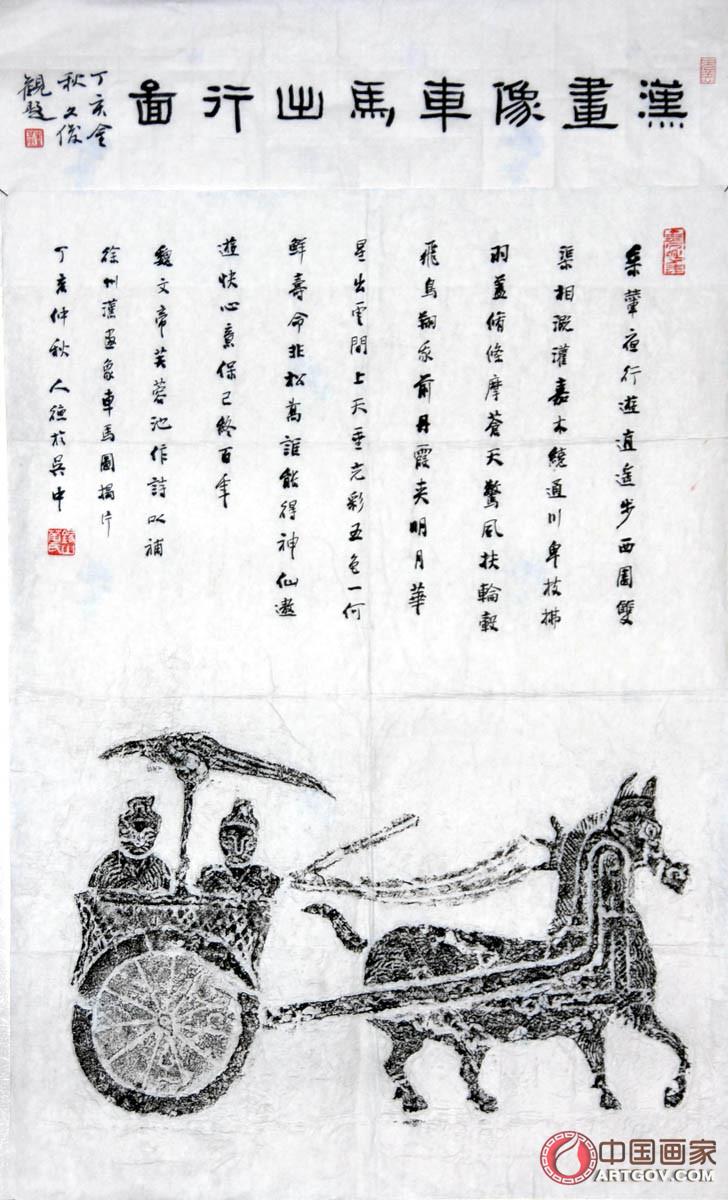 漢畫像車馬出行圖
丁亥金
秋文俊
觀題
乘輦夜行遊逍遙步西園雙
渠相溉灌嘉木繞通川卑枝拂
羽蓋脩條摩蒼天驚風扶輪轂
飛鳥翔我前丹霞夾明月華
星出雲間上天垂光彩五色一何
鮮壽命非松喬誰能得神仙遨
遊快心意保己終百年
魏文帝芙蓉池作詩以補
徐州漢畫象車馬圖搨片
丁亥仲秋人德於吳中
中国画家
ARTGOV.COM